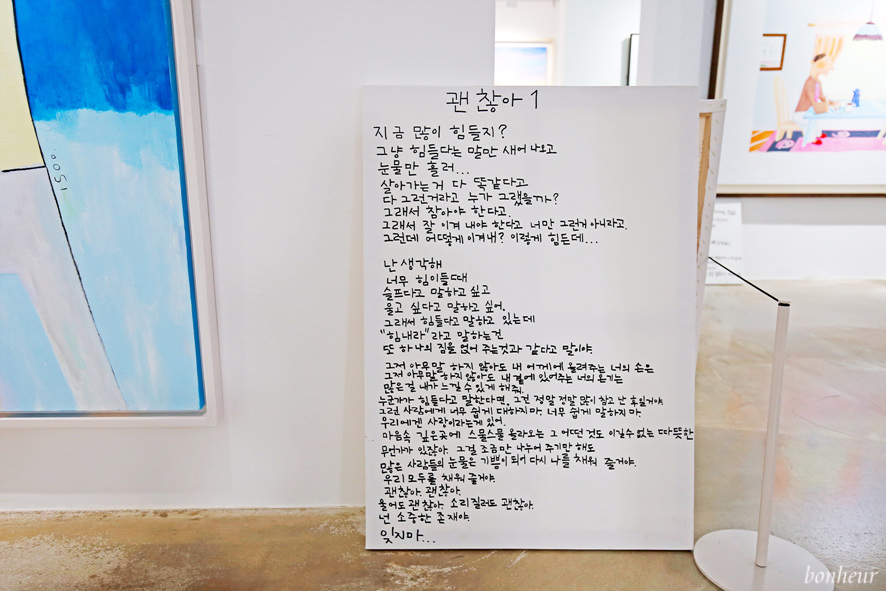 괜찮아 1
지금 많이 힘들지?
그냥 힘들다는 말만 새어 나오고
눈물만 흘러...
살아가는거 다 똑같다고
다 그런거라고 누가 그랬을까?
그래서 참아야 한다고.
그래서 잘 이겨 내야 한다고 너만 그런거 아니라고.
그런데 어떻게 이겨내? 이렇게 힘든데...
난 생각해
너무 힘이들때
슬프다고 말하고 싶고
울고 싶다고 말하고 싶어.
그래서 힘들다고 말하고 있는데
"힘내라"라고 말하는건
또 하나의 짐을 얹어 주는것과 같다고 말이야.
그저 아무말 하지 않아도 내 어깨에 올려주는 너의 손은
그저 아무말 하지 않아도 내 곁에 있어주는 너의 온기는
많은걸 내가 느낄 수 있게 해줘.
누군가가 힘들다고 말한다면, 그건 정말 정말 많이 참고 난 후일거야.
그런 사람에게 너무 쉽게 대하지 마. 너무 쉽게 말하지 마.
우리에겐 사랑이라는게 있어.
마음속 깊은곳에 스물스물 올라오는 그 어떤 것도 이길수 없는 따뜻한
무언가가 있잖아. 그걸 조금만 나누어 주기만 해도
많은 사람들의 눈물은 기쁨이 되어 다시 나를 채워 줄거야.
우리 모두를 채워 줄거야.
괜찮아. 괜찮아.
울어도 괜찮아. 소리 질러도 괜찮아.
넌 소중한 존재야.
잊지마...
bonheur